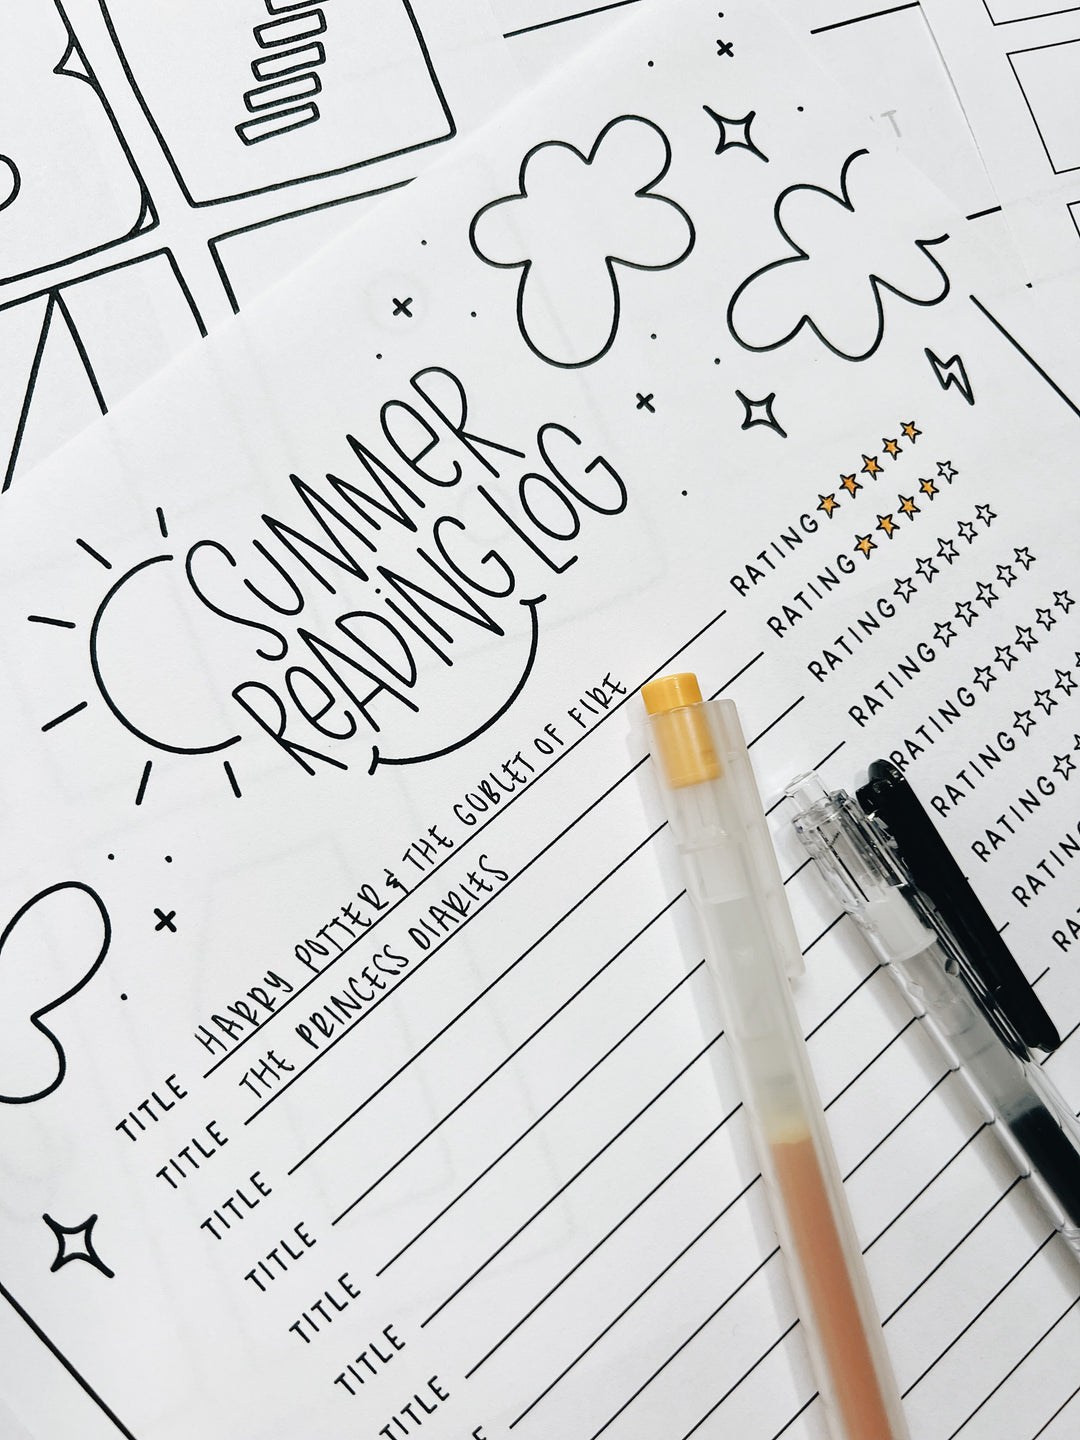 SUMMER
READING LOG
TITLE HARRY POTTER & THE GOBLET OF FIRE RATING
TITLE THE PRINCESS DIARIES RATING
TITLE RATING
TITLE RATING
TITLE RATING
TITLE RATING
TITLE RATING